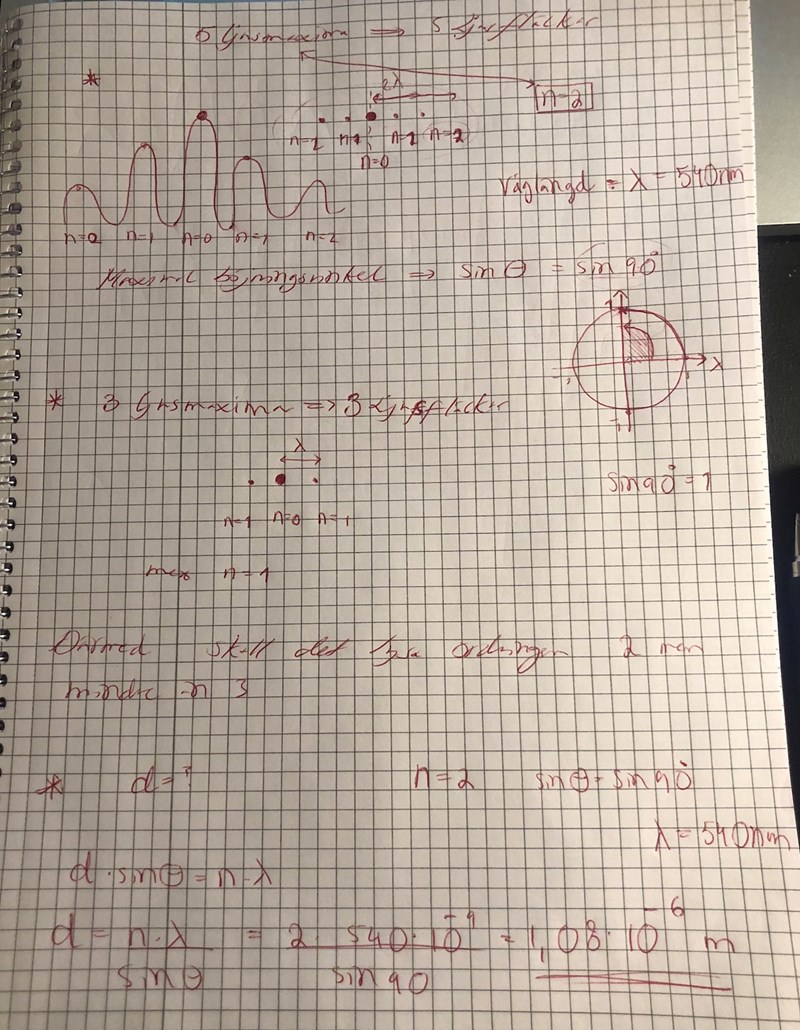 5 ljusmaxima => 5 ljusfläckar
*
2λ
n=2
n=2 n=1 n=2 n=2
n=0
våglängd = λ = 540nm
n=0 n=1 n=0 n=1 n=2
Maximal böjningsvinkel => sin θ = sin 90°
* 3 ljusmaxima => 3 ljusfläckar
λ
sin90° = 1
n=1 n=0 n=1
max n=1
Därmed skall det lysa ordningen 2 men
mindre än 3
* d=? n=2 sinθ = sin90°
λ = 540nm
d·sinθ = n·λ
d = n·λ / sinθ = 2·540·10^-9 / sin90 = 1,08·10^-6 m